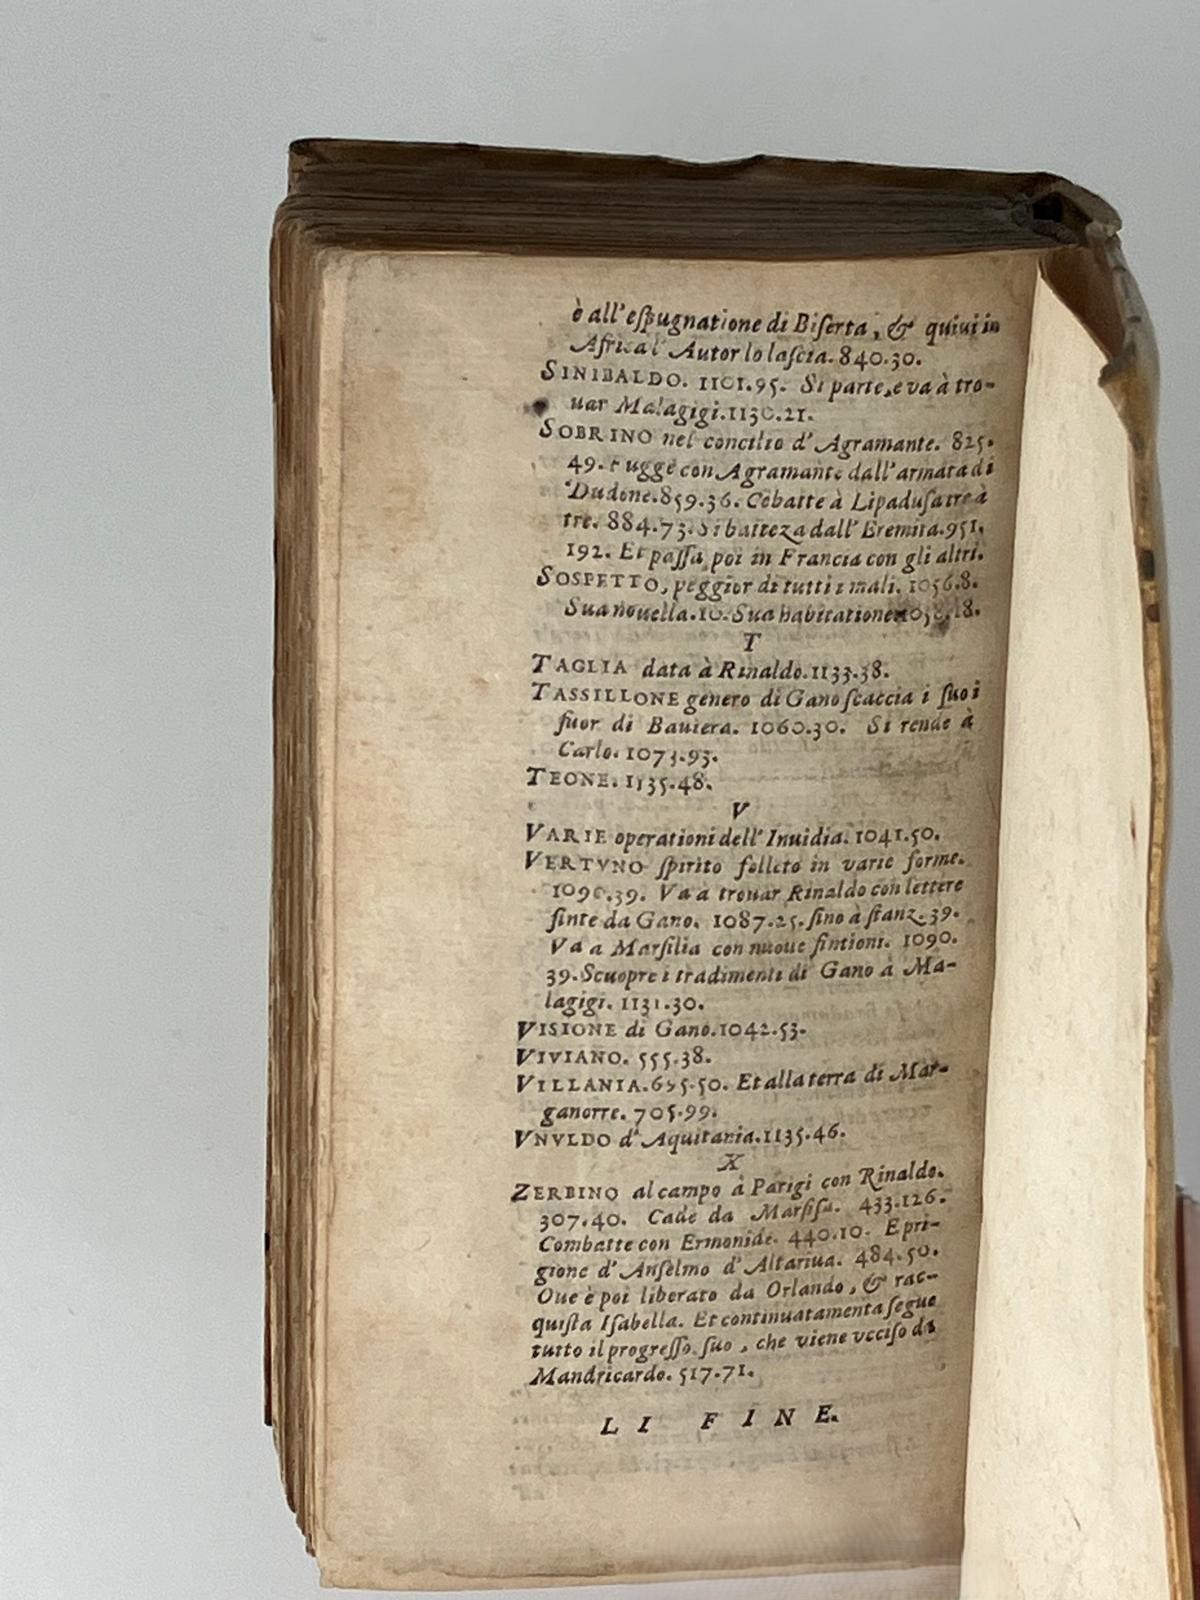 è all'eſpugnatione di Biſerta, & quiui in
Africa l' Autor lo laſcia. 840.30.
SINIBALDO. 1101.95. Si parte, e va à tro-
uar Malagigi. 1130.21.
SOBRINO nel concilio d' Agramante. 825.
49. Fugge con Agramante dall' armata di
Dudone. 859.36. Cōbatte à Lipaduſa tre à
tre. 884.73. Si batteza dall' Eremita. 951.
192. Et paſſa poi in Francia con gli altri.
SOSPETTO, peggior di tutti i mali. 1056.8.
Sua nouella. 10. Sua habitatione. 18.
T
TAGLIA data à Rinaldo. 1133.38.
TASSILLONE genero di Gano ſcaccia i ſuoi
fuor di Bauiera. 1060.30. Si rende à
Carlo. 1073.93.
TEONE. 1135.48.
V
VARIE operationi dell' Inuidia. 1041.50.
VERTVNO ſpirito folleto in varie forme.
1090.39. Va a trouar Rinaldo con lettere
finte da Gano. 1087.25. ſino à ſtanz. 39.
Va a Marſilia con nuoue fintioni. 1090.
39. Scuopre i tradimenti di Gano à Ma-
lagigi. 1131.30.
VISIONE di Gano. 1042.53.
VIVIANO. 555.38.
VILLANIA. 695.50. Et alla terra di Mar-
ganorre. 705.99.
VNVLDO d' Aquitania. 1135.46.
X
ZERBINO al campo à Parigi con Rinaldo.
307.40. Cade da Marfiſa. 433.126.
Combatte con Ermonide. 440.10. E pri-
gione d' Anſelmo d' Altariua. 484.50.
Oue è poi liberato da Orlando, & rac-
quiſta Iſabella. Et continuatamenta ſegue
tutto il progreſſo ſuo, che viene vcciſo da
Mandricardo. 517.71.
LI FINE.